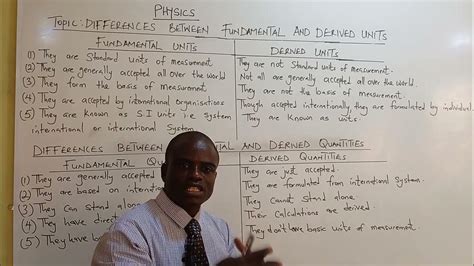 PHYSICS
TOPIC: DIFFERENCES BETWEEN FUNDAMENTAL AND DERIVED UNITS
FUNDAMENTAL UNITS
(1) They are Standard units of measurement
(2) They are generally accepted all over the world
(3) They form the basis of measurement
(4) They are accepted by international organisations
(5) They are known as S.I units i.e System
international or international System
DERIVED UNITS
They are not Standard units of measurement.
Not all are generally accepted all over the world.
They are not the basis of measurement.
Though accepted internationally, they are formulated by individual
They are Known as units
DIFFERENCES BETWEEN AND DERIVED QUANTITIES
FUNDAMENTAL
(1) They are generally accepted
(2) They are based on
(3) They Can Stand alone
(4) They have
(5) They have
DERIVED QUANTITIES
They are just accepted.
They are formulated from international System.
They Cannot Stand alone
Their Calculations are derived.
They don't have basic units of measurement.